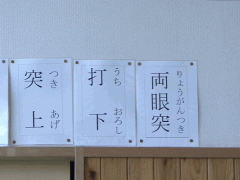 りょうがんつき
両眼突
うち おろし
打下
つき あげ
突上